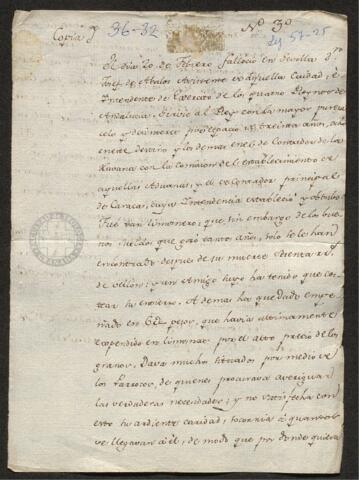 Copia
36-32
Nº 3º
Leg 57-25
El dia 20. de Febrero fallecio en Sevilla Dn
Josef de Abalos Asistente de aquella Ciudad, é
Intendente de Exercito de los quatro Reynos de
Andalucia. Sirvió al Rey con la mayor pureza
celo y desinteres por espacio de treinta años, al
en este destino, y los demas en el de Contador de la
Havana con la comision del establecimiento de
aquellas Aduanas, y el de Contador principal
de Caracas, cuya Intendencia estableció y
Fué tan limosnero, que sin embargo de los bue-
nos sueldos que gozó tantos años, solo le han
encontrado despues de su muerte ochenta rs.
de vellon; y un Amigo suyo ha tenido que cos-
tear su entierro. Ademas ha quedado empe-
ñado en pesos, que havia ultimamente
expendido en limosnas por el alto precio de los
granos. Dava muchas situadas por medio de
los Parrocos, de quienes procurava averiguar
las verdaderas necesidades; y no satisfecha con
esto su ardiente caridad, socorria á quantos
se llegavan á él, de modo que por donde quiera